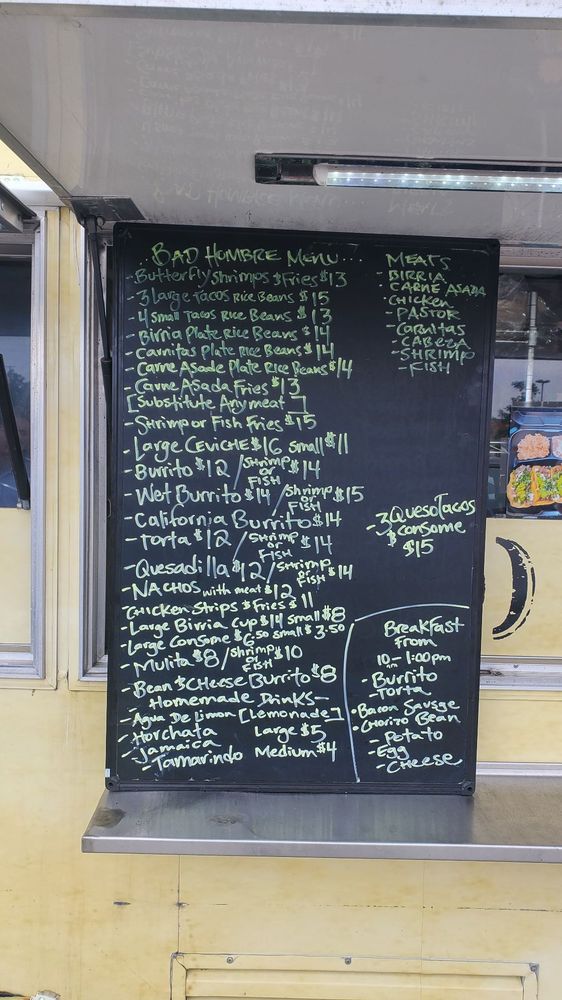 BAD HOMBRE MENU...
-Butterfly Shrimps & Fries $13
-3 Large Tacos Rice Beans $15
-4 Small Tacos Rice Beans $13
-Birria Plate Rice Beans $14
-Carnitas Plate Rice Beans $14
-Carne Asade Plate Rice Beans $14
-Carne Asada Fries $13
[Substitute Any meat]
-Shrimp or Fish Fries $15
-Large CEVICHE $16 Small $11
-Burrito $12 / Shrimp or FISH $14
-Wet Burrito $14 / Shrimp or FISH $15
-California Burrito $14
-Torta $12 / Shrimp or FISH $14
-Quesadilla $12 / Shrimp or FISH $14
-NACHOS with meat $12
CHICKEN Strips & Fries $11
-Large Birria Cup $14 Small $8
-Large Consome $6.50 Small $3.50
-Mulita $8 / Shrimp or FISH $10
-Bean & CHEESE Burrito $8
-Homemade Drinks-
-Agua De Limon [Lemonade]
-Horchata Large $5
-Jamaica
-Tamarindo Medium $4
MEATS
-BIRRIA
-CARNE ASADA
-CHICKEN
-PASTOR
-Carnitas
-CABEZA
-SHRIMP
-FISH
-3 Queso Tacos
& Consome
$15
Breakfast
From
10am 1:00pm
-Burrito
-Torta
•Bacon Sausge
•CHorizo Bean
-Potato
-Egg
-CHEESE